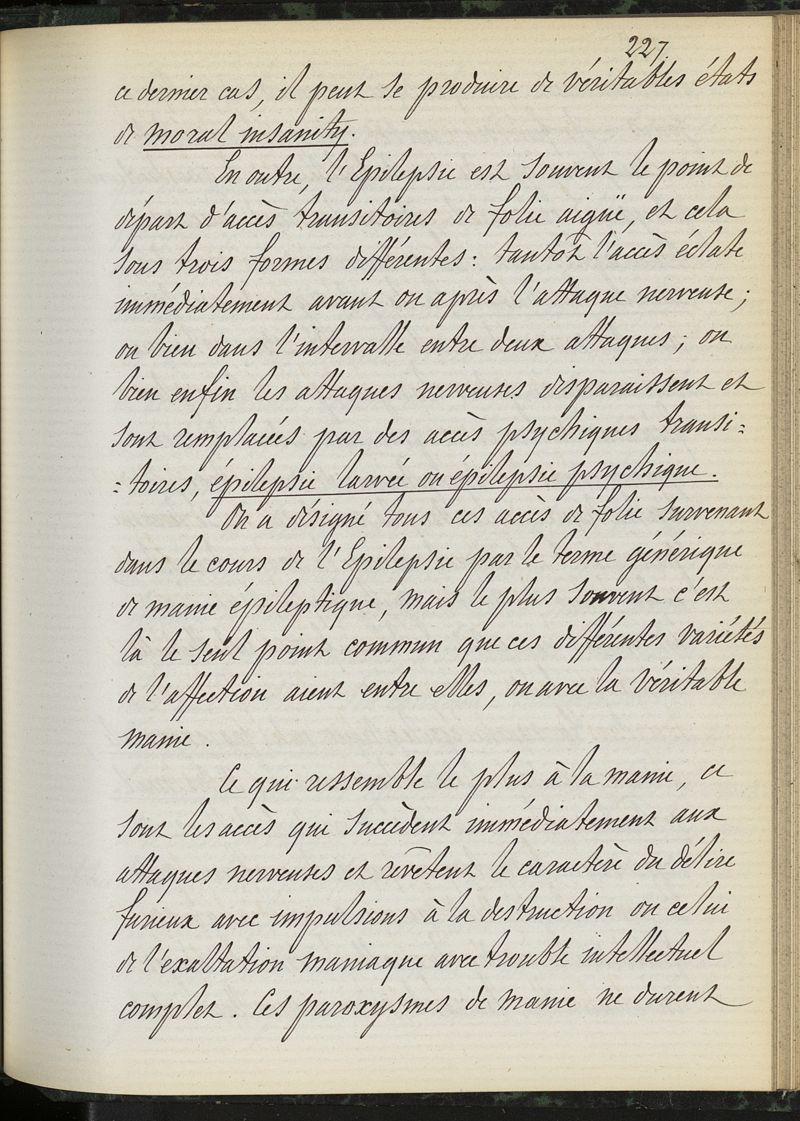 227.
ce dernier cas, il peut se produire de véritables états
de moral insanity.
En outre, l'Epilepsie est souvent le point de
départ d'accès transitoires de folie aigüe, et cela
sous trois formes différentes : tantôt l'accès éclate
immédiatement avant ou après l'attaque nerveuse ;
ou bien dans l'intervalle entre deux attaques ; ou
bien enfin les attaques nerveuses disparaissent et
sont remplacées par des accès psychiques transi=
=toires, épilepsie larvée ou épilepsie psychique.
On a désigné tous ces accès de folie survenant
dans le cours de l'Epilepsie par le terme générique
de manie épileptique, mais le plus souvent c'est
là le seul point commun que ces différentes variétés
de l'affection aient entre elles, ou avec la véritable
manie.
Ce qui ressemble le plus à la manie, ce
sont les accès qui succèdent immédiatement aux
attaques nerveuses et revêtent le caractère du délire
furieux avec impulsions à la destruction ou celui
de l'exaltation maniaque avec trouble intellectuel
complet. Ces paroxysmes de manie ne durent